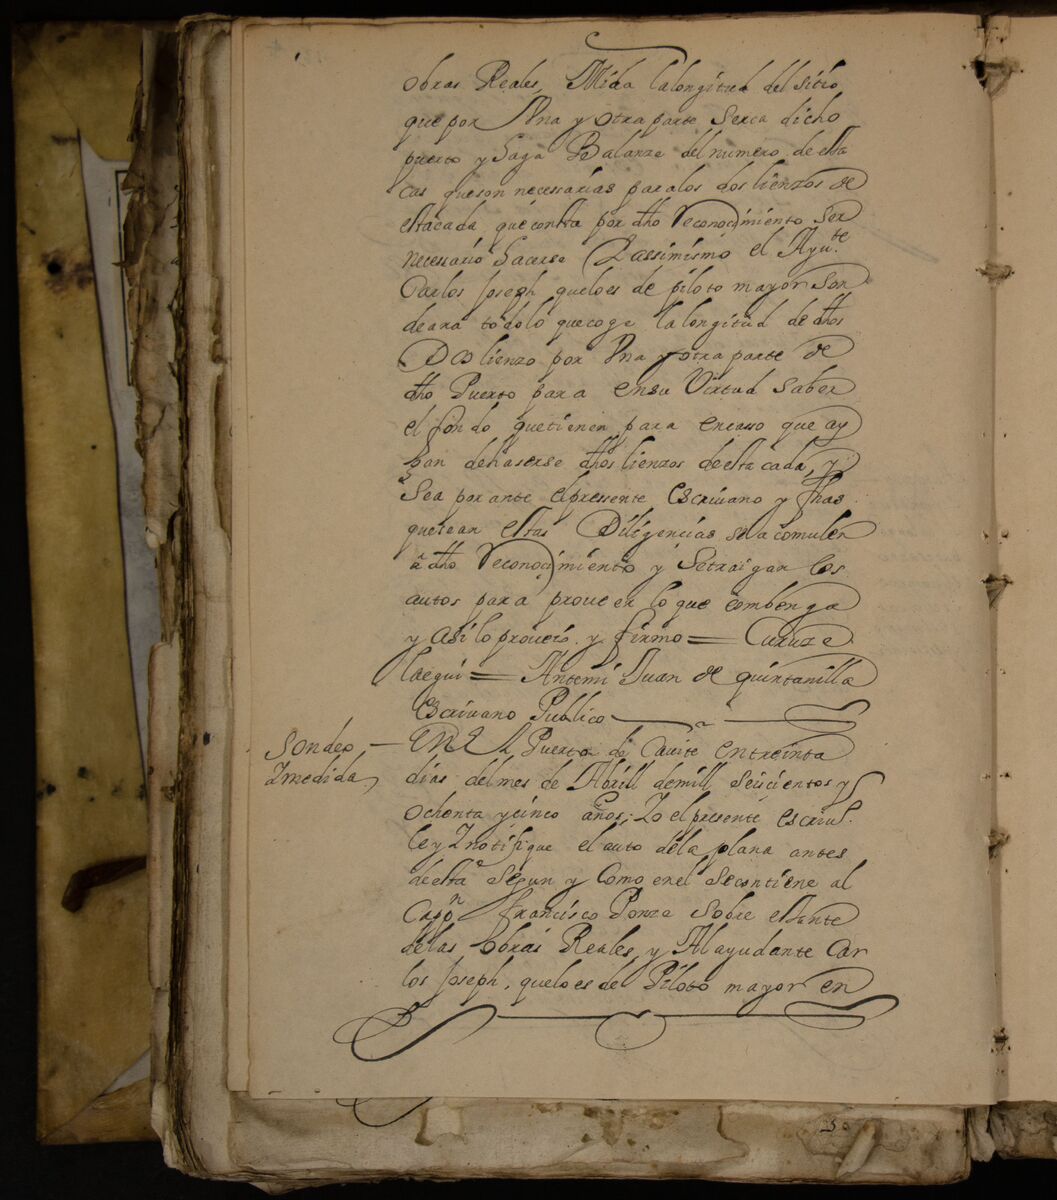 obras Reales, Mida lalongitud del sitio
que por Una y otra parte serca dicho
puerto y haga Balanze del numero de esta
cas queson necessarias paralos dos lienzos de
estacada que consta por dho Reconocimiento ser
necessario hacerse Yassimismo el Ayu.te
Carlos Joseph queloes de piloto mayor son
deara todolo quecoge lalongitud de dhos
Dos lienzo por Una y otra parte de
dho Puerto para ensu Virtud saber
el fondo quetienen para encasso que ay
han dehaserse dhos lienzos deestacada, y
Sea por ante elpressente escriuano y fhas
quesean estas Diligencias se acomulen
a dho Reconocimiento y setraigan los
autos para proueer lo que combenga
y asi lo proueió y firmo = Curuze
laegui = Antemi Juan de quintanilla
escriuano Publico
Sondeo, — EnEl Puerto de Cauite entreinta
Ymedida, dias delmes de Abrill demill seiscientos y
ochenta ycinco años; Yo elpresente escriu.o
ley Ynotifique el auto dela plana antes
deesta segun y Como enel secontiene al
Capn francisco Ponze sobre estante
delas obras Reales, y Al ayudante Car
los Joseph, queloes de Piloto mayor en